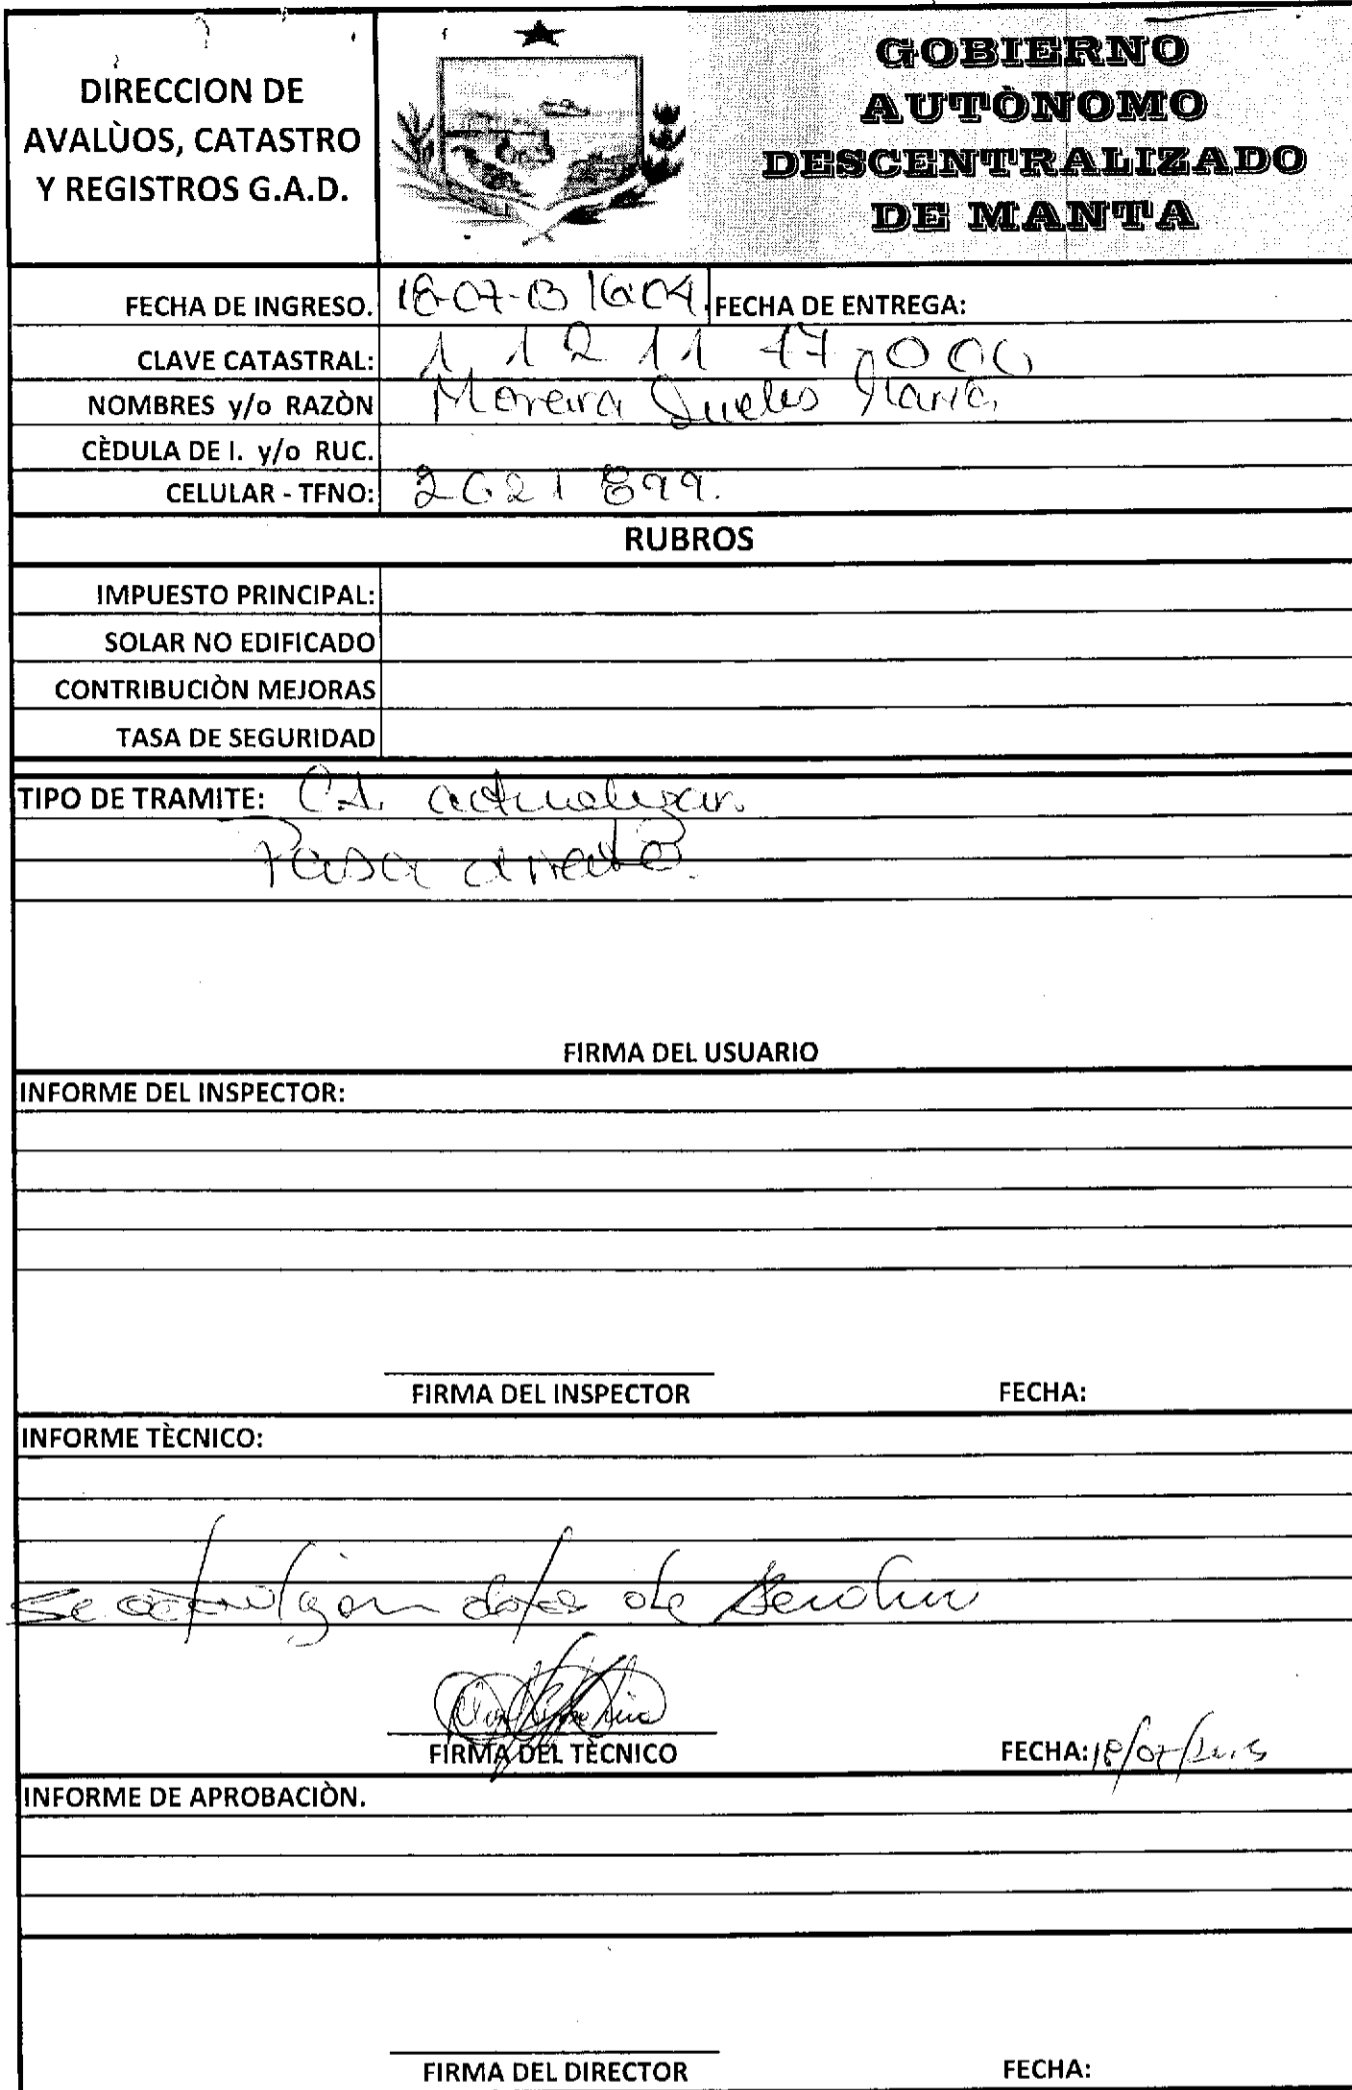 DIRECCION DE
AVALÙOS, CATASTRO
Y REGISTROS G.A.D.
GOBIERNO
AUTÒNOMO
DESCENTRALIZADO
DE MANTA
FECHA DE INGRESO. 18-07-13 16:04. FECHA DE ENTREGA:
CLAVE CATASTRAL: 1 12 11 17 000
NOMBRES y/o RAZÒN Moreira María
CÈDULA DE I. y/o RUC.
CELULAR - TFNO: 2621899.
RUBROS
IMPUESTO PRINCIPAL:
SOLAR NO EDIFICADO
CONTRIBUCIÒN MEJORAS
TASA DE SEGURIDAD
TIPO DE TRAMITE: actualizar.
Pasa directo.
FIRMA DEL USUARIO
INFORME DEL INSPECTOR:
FIRMA DEL INSPECTOR FECHA:
INFORME TÈCNICO:
se de
FIRMA DEL TÈCNICO FECHA: 18/07/2013
INFORME DE APROBACIÒN.
FIRMA DEL DIRECTOR FECHA: